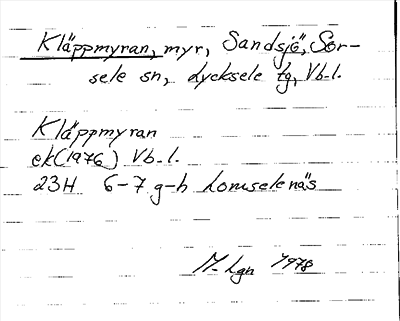 Kläppmyran, myr, Sandsjö, Sor-
sele sn, Lycksele tg, Vb-l.
Kläppmyran
ek(1976) Vb-l.
23H 6-7 g-h Lomselenäs
M-Lgn 1978